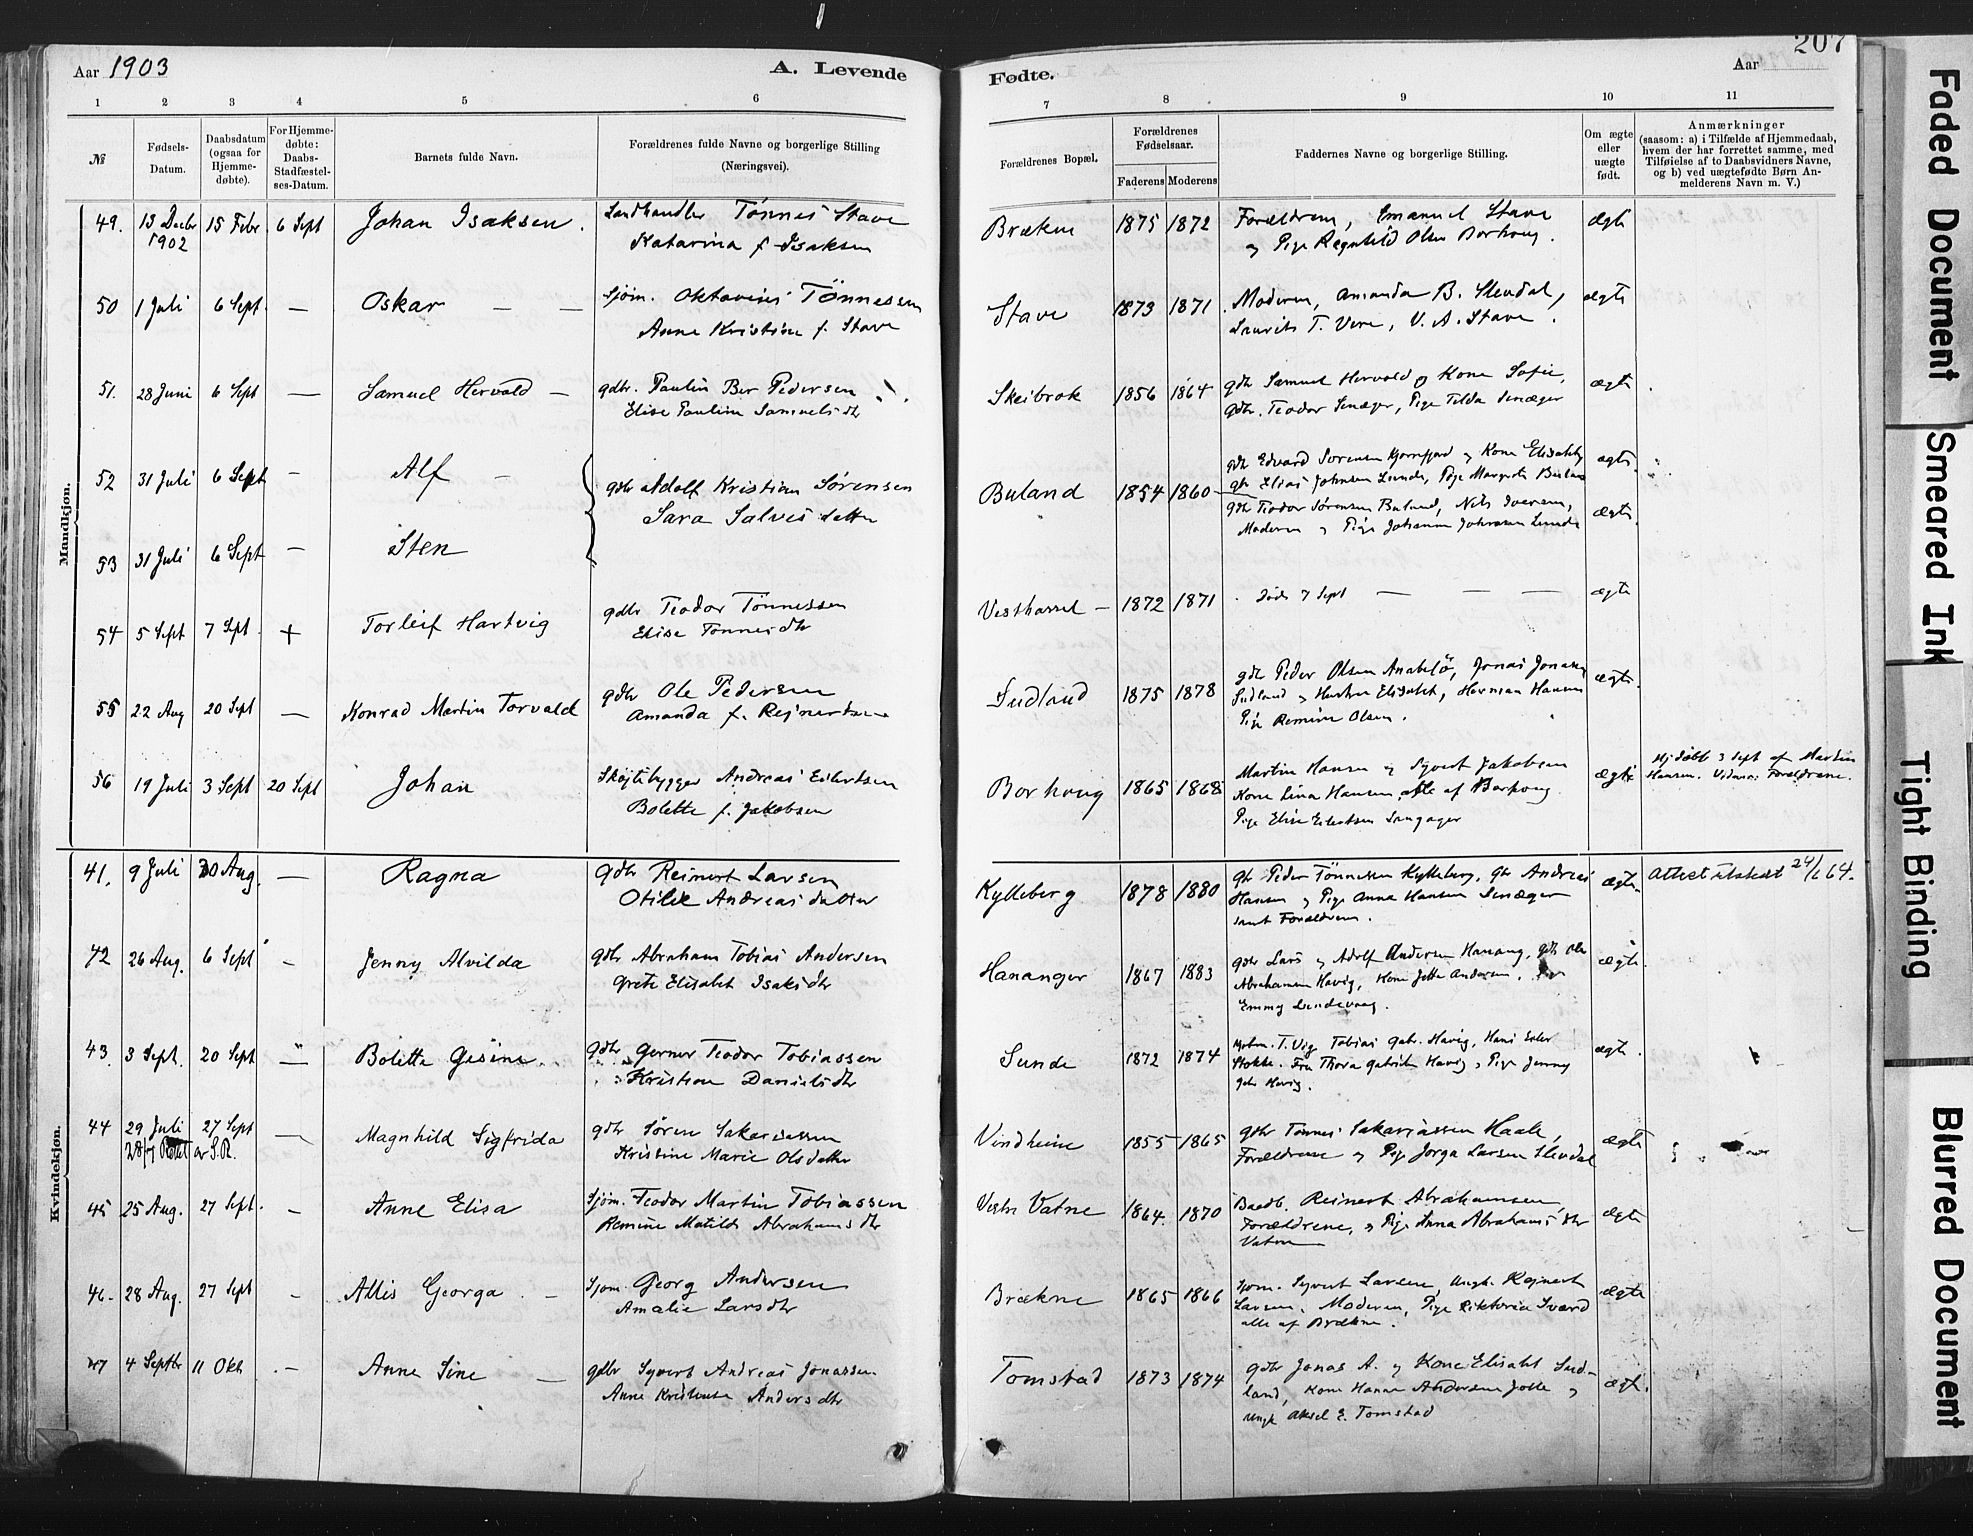 207
Aar 1903
A. Levende
Fødte.
Aar
1 2 3 4 5 6 7 8 9 10 11
№
Fødsels-
Datum.
Daabsdatum
(ogsaa for
Hjemme-
døbte).
For Hjemme-
døbte:
Daabs-
Stadfæstel-
ses-Datum.
Barnets fulde Navn.
Forældrenes fulde Navne og borgerlige Stilling
(Næringsvei).
Forældrenes Bopæl.
Forældrenes
Fødselsaar.
Faderens Moderens
Faddernes Navne og borgerlige Stilling.
Om ægte
eller
uægte
født.
Anmærkninger
(saasom: a) i Tilfælde af Hjemmedaab,
hvem der har forrettet samme, med
Tilføielse af to Daabsvidners Navne,
og b) ved uægtefødte Børn An-
melderens Navn m. V.)
Mandkjøn.
49. 13 Decbr 15 Febr 6 Sept Johan Isaksen. Landhandler Tønnes Stave Brækne 1875 1872 Forældrene, Emanuel Stave ægte
1902 Katarina f. Isaksen og Pige Ragnhild Olsen Borhoug.
50 1 Juli 6 Sept. — Oskar — — Sjøm. Oktavius Tønnessen Stave 1873 1871 Moderen, Amanda B. Slevdal, ægte
Anne Kristine f. Stave Laurits T. Vere, V. A. Stave.
51. 28 Juni 6 Sept — Samuel Hervold — gdbr. Paulin Ber Pedersen Skeibrok 1856 1864 gdbr Samuel Hervold og Kone Sofie, ægte
Elise Pauline Samuelsdtr gdbr. Teodor Senæger, Pige Tilda Senæger
52 31 Juli 6 Sept — Alf — gdbr Adolf Kristian Sørensen Buland 1854 1860 gdbr Edvard Sorensen og Kone ægte
Sara Salvesdatter Elias Johnsen Lunde, Pige Margrete Buland
gdbr Teodor Sørensen Buland, Nils Iversen, ægte
53 31 Juli 6 Sept — Sten Moderen og Pige Johanne Johnsen Lunde
54 5 Sept 7 Sept + Torleif Hartvig gdbr Teodor Tønnessen Vesthassel — 1872 1871 Døde 7 Sept — — — ægte
Elise Tønnesdtr
55 22 Aug 20 Sept — Konrad Martin Torvald gdbr Ole Pedersen Sudland 1875 1878 gdbr Peder Olsen Anabelø, Jonas Jonassen ægte.
Amanda f. Rejnertsen Sudland og Hustru Elisabet, Herman Hansen
Pige Remine Olsen.
56 19 Juli 3 Sept 20 Sept Johan Skøjtebygger Andreas Eilertsen Borhoug 1865 1868 Martin Hansen og Syvert Jakobsen ægte Hj.døbt 3 Sept af Martin
Bolette f. Jakobsen Kone Lina Hansen, alle af Borhoug. Hansen. Vidner: Forældrene.
Pige Elise Eilertsen
Kvindekjøn.
41. 9 Juli 30 Aug. — Ragna gdbr Reinert Larsen Kylleberg 1878 1880 gbr Peder Tønnessen Kylleberg, gbr Andreas ægte. Attest utstedt 24/6 64.
Otilde Andreasdatter Hansen og Pige Anna Hansen Senæger
samt Forældrene.
42 26 Aug. 6 Sept — Jenny Alvilda gdbr Abraham Tobias Andersen Hananger 1867 1883 gdbr Lars og Adolf Andersen Hanang, gdbr Ole ægte
Grete Elisabet Isaksdtr Abrahamsen Havig, Kone Jette Andersen.
Emmy Lundevaag.
43 3 Sept. 20 Sept — Bolette Gesine gdbr Gerner Teodor Tobiassen Sunde 1872 1874 T. Vig Tobias Gabr. Havig, Hans ægte.
Kristine Danielsdtr Stokke. Fru Thora Gabrielsen Havig, Pige Jenny
Gabr Havig.
44 29 Juli 27 Sept — Magnhild Sigfrida gdbr Søren Sakariassen Vindheim 1855 1865 gdbr Tønnes Sakariassen Haale, ægte
28/ Rettet av S.R. Kristine Marie Olsdatter Forældrene og Pige Jorga Larsen Slevdal
45 25 Aug. 27 Sept. — Anne Elisa Sjøm. Teodor Martin Tobiassen Vestre Vatne 1864. 1870 Baadb. Reinert Abrahamsen, ægte
Remine Matilde Abrahamsdtr Forældrene, og Pige Anna Abrahamsdtr
Vatne
46- 28 Aug. 27 Sept — Allis Georga — Sjøm. Georg Andersen Brækne 1865 1866 Sjøm. Syvert Larsen, Ungk. Rejnert ægte
Amalie Larsdtr Larsen. Moderen, Pige Viktoria Sværd
alle af Brækne.
47 4 Septbr 11 Okt — Anne Sine — gdbr Syvert Andreas Jonassen Tomstad 1873 1874 gdbr Jonas A. og Kone Elisabet Sud- ægte.
Anne Kristense Andersdtr land, Kone Hanne Andersen Jolle og
Ungk Aksel E. Tomstad
Faded Document
Smeared Ink
Tight Binding
Blurred Document